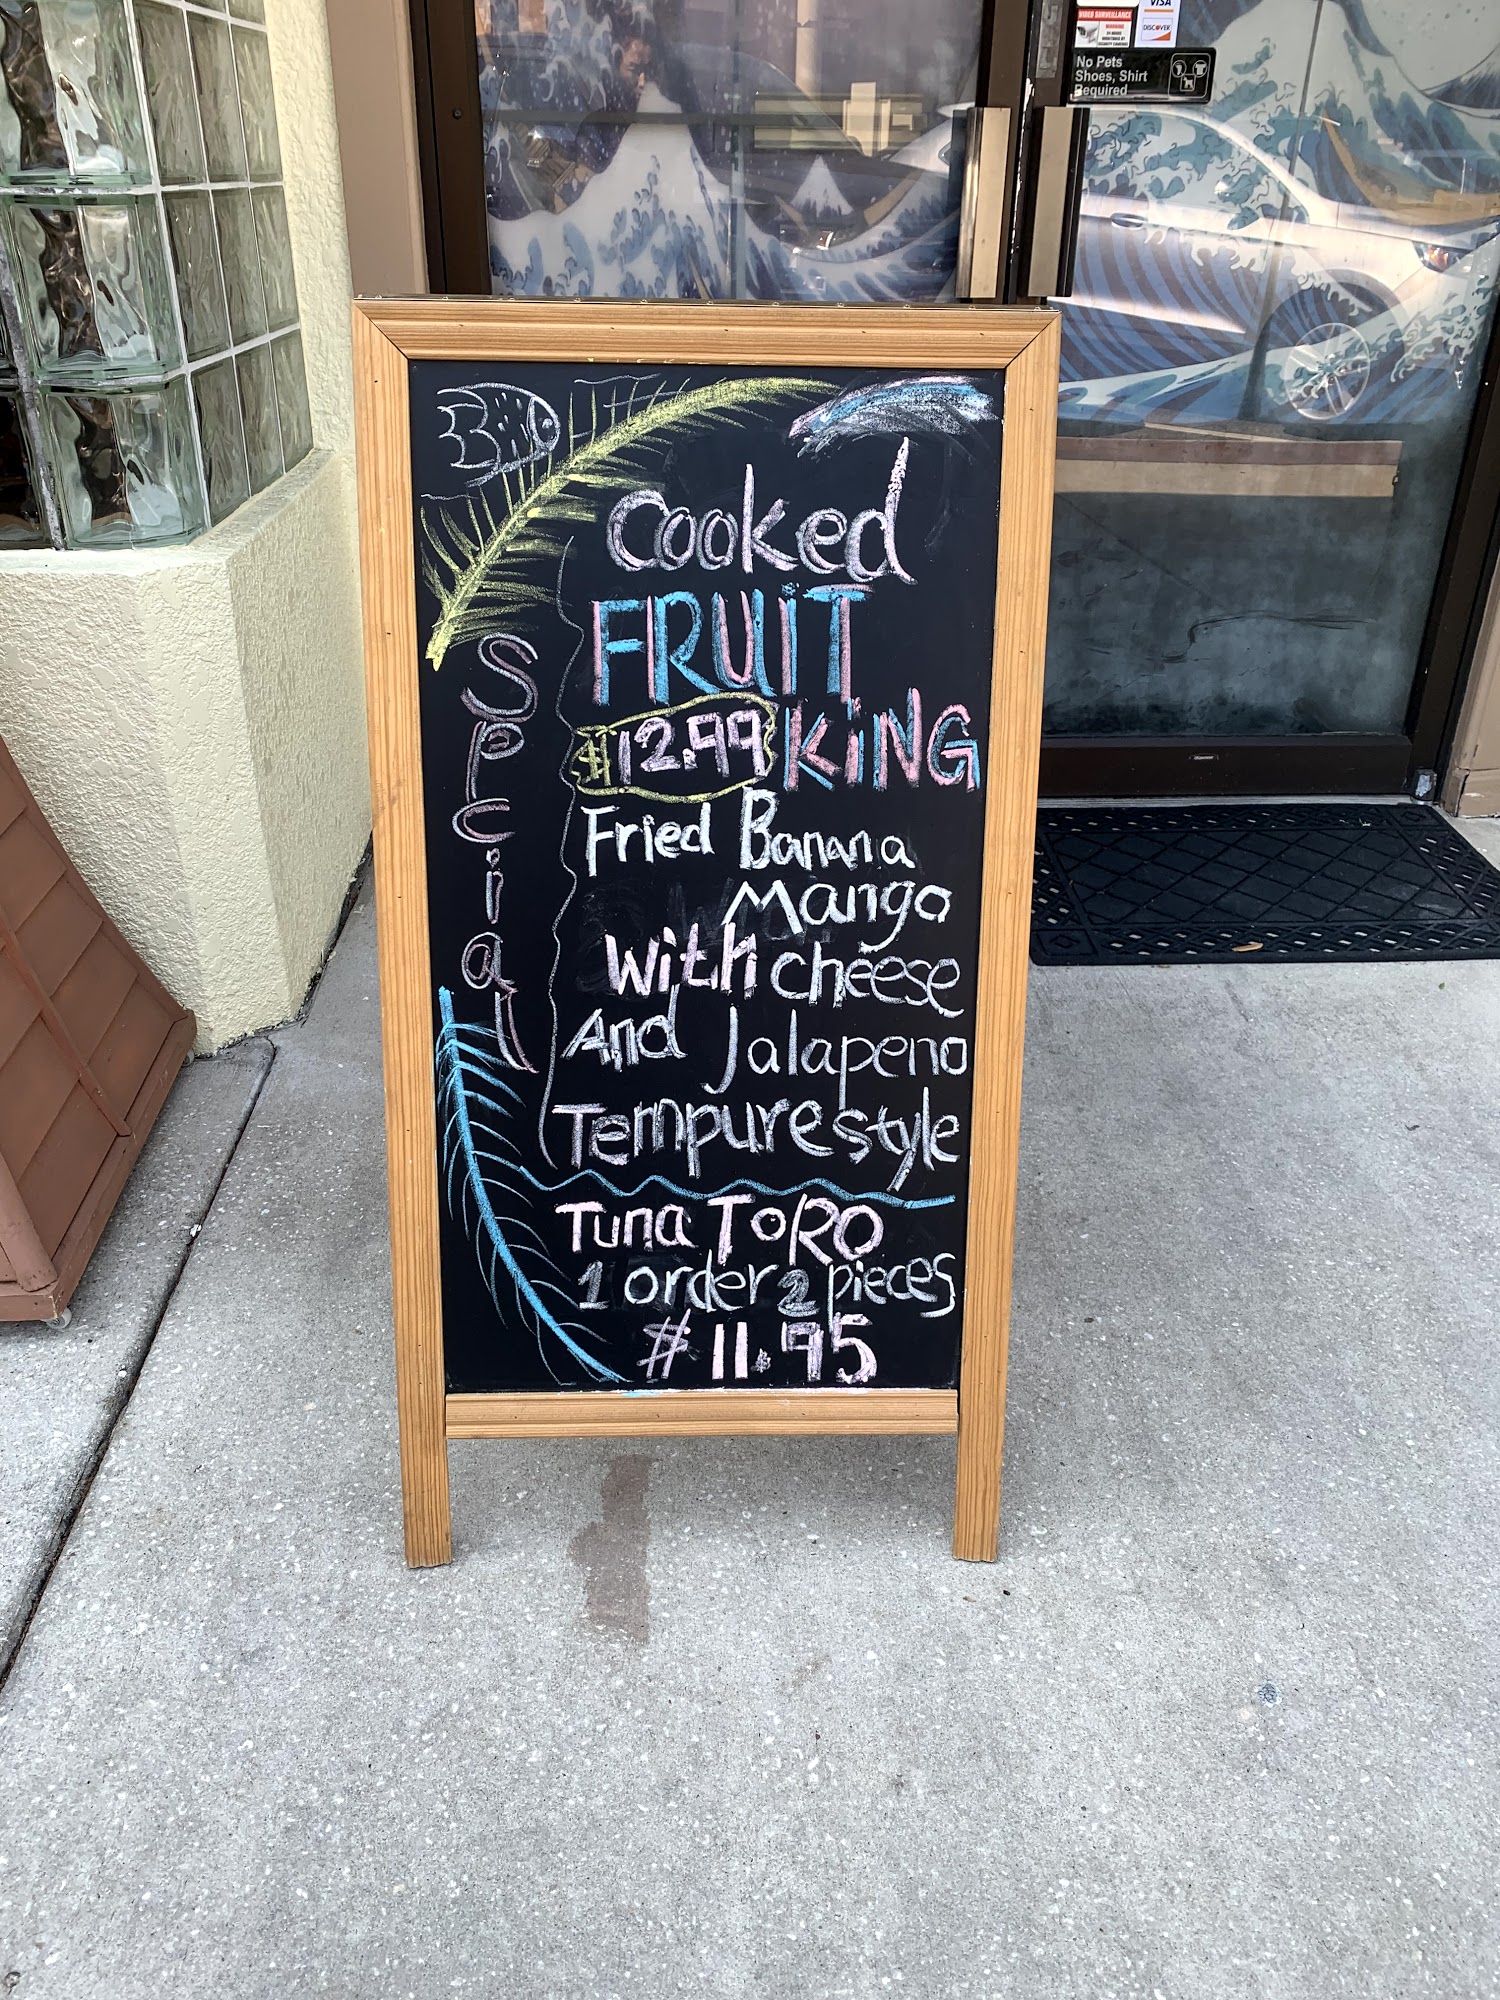 VISA
VIDEO SURVEILLANCE
WARNING
DISCOVER
No Pets
Shoes, Shirt
Required
Special
Cooked
FRUiT
$12.99 KiNG
Fried Banana
Mango
With cheese
And Jalapeno
Tempure style
Tuna ToRO
1 order 2 pieces
$11.95